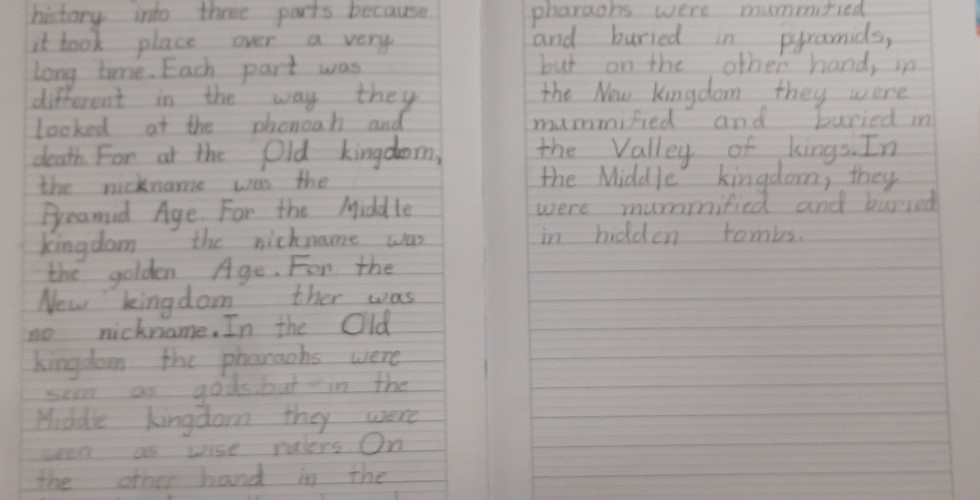 history into three parts because
it took place over a very
long time. Each part was
different in the way they
looked at the phonoah and
death. For at the Old kingdom,
the nickname was the
Pyramid Age. For the Middle
kingdom the nickname was
the golden Age. For the
New kingdom ther was
no nickname. In the Old
kingdom the pharaohs were
seen as gods. but in the
Middle kingdom they were
seen as wise rulers. On
the other hand in the
pharaohs were mummified
and buried in pyramids,
but on the other hand, in
the New kingdom they were
mummified and buried in
the Valley of kings. In
the Middle kingdom, they
were mummified and buried
in hidden tombs.